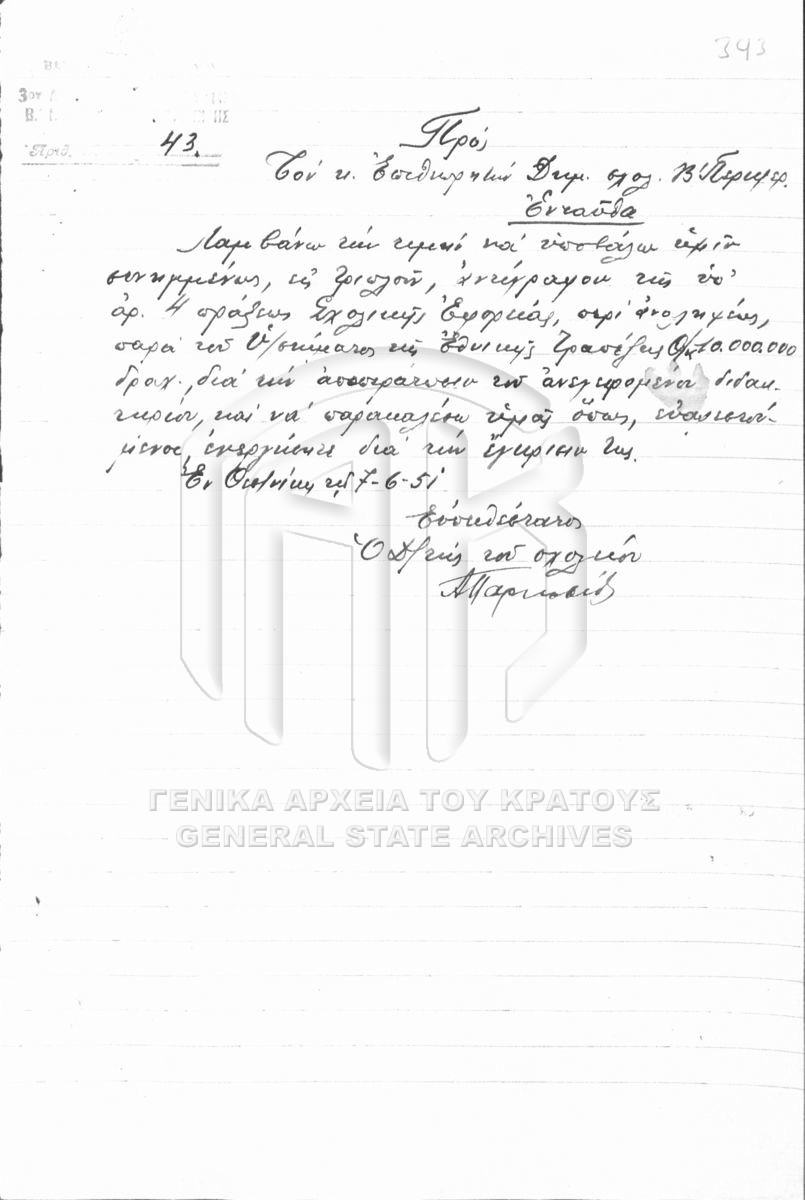 343
3ου
Β.
Ἀριθ. 43.
Πρός
Τόν κ. Ἐπιθεωρητήν Δημ. σχολ. Β' Περιφερ.
Ἐνταῦθα
Λαμβάνω τήν τιμήν νά ὑποβάλω ὑμῖν
συνημμένως, εἰς τριπλοῦν, ἀντίγραφον τῆς ὑπ'
ἀρ. 4 πράξεως Σχολικῆς Ἐφορείας, περί ἀναλήψεως,
παρά τοῦ Ὑ/στήματος τῆς Ἐθνικῆς Τραπέζης 10.000.000
δραχ., διά τήν ἀποπεράτωσιν τοῦ ἀνεγειρομένου διδακ-
τηρίου, καί νά παρακαλέσω ὑμᾶς ὅπως, εὐαρεστού-
μενος, ἐνεργήσητε διά τήν ἔγκρισίν της.
Ἐν Θεσ/νίκῃ τῇ 7-6-51
Εὐπειθέστατος
Ὁ Δ/τής τοῦ σχολείου
ΓΕΝΙΚΑ ΑΡΧΕΙΑ ΤΟΥ ΚΡΑΤΟΥΣ
GENERAL STATE ARCHIVES